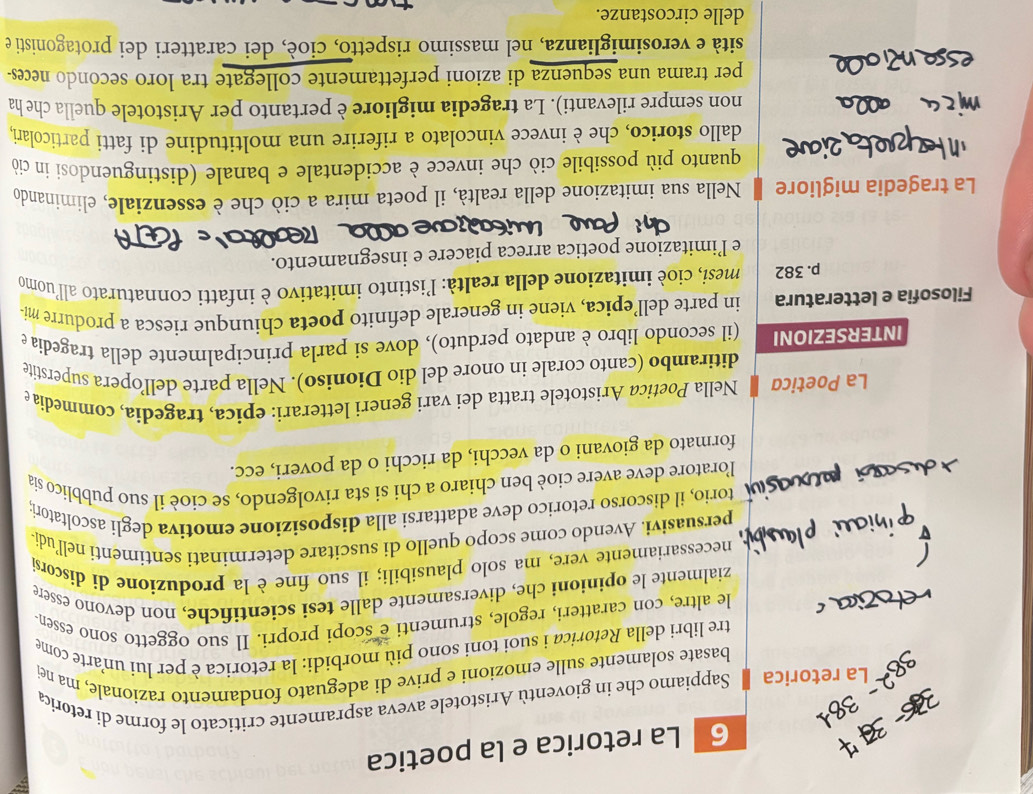 6 La retorica e la poetica
376-377
382-381
La retorica
Sappiamo che in gioventù Aristotele aveva aspramente criticato le forme di retorica
basate solamente sulle emozioni e prive di adeguato fondamento razionale, ma nei
tre libri della Retorica i suoi toni sono più morbidi: la retorica è per lui un'arte come
le altre, con caratteri, regole, strumenti e scopi propri. Il suo oggetto sono essen-
zialmente le opinioni che, diversamente dalle tesi scientifiche, non devono essere
necessariamente vere, ma solo plausibili; il suo fine è la produzione di discorsi
persuasivi. Avendo come scopo quello di suscitare determinati sentimenti nell'udi-
torio, il discorso retorico deve adattarsi alla disposizione emotiva degli ascoltatori;
l'oratore deve avere cioè ben chiaro a chi si sta rivolgendo, se cioè il suo pubblico sia
formato da giovani o da vecchi, da ricchi o da poveri, ecc.
retorica
plausibili
discorsi persuasivi
La Poetica
Nella Poetica Aristotele tratta dei vari generi letterari: epica, tragedia, commedia e
ditirambo (canto corale in onore del dio Dioniso). Nella parte dell'opera superstite
(il secondo libro è andato perduto), dove si parla principalmente della tragedia e
in parte dell'epica, viene in generale definito poeta chiunque riesca a produrre mi-
mesi, cioè imitazione della realtà: l'istinto imitativo è infatti connaturato all'uomo
e l'imitazione poetica arreca piacere e insegnamento.
INTERSEZIONI
Filosofia e letteratura
p. 382
chi pone imitazione alla Realtà = POETA
La tragedia migliore
Nella sua imitazione della realtà, il poeta mira a ciò che è essenziale, eliminando
quanto più possibile ciò che invece è accidentale e banale (distinguendosi in ciò
dallo storico, che è invece vincolato a riferire una moltitudine di fatti particolari,
non sempre rilevanti). La tragedia migliore è pertanto per Aristotele quella che ha
per trama una sequenza di azioni perfettamente collegate tra loro secondo neces-
sità e verosimiglianza, nel massimo rispetto, cioè, dei caratteri dei protagonisti e
delle circostanze.
interpretazione
mira alla
essenziale